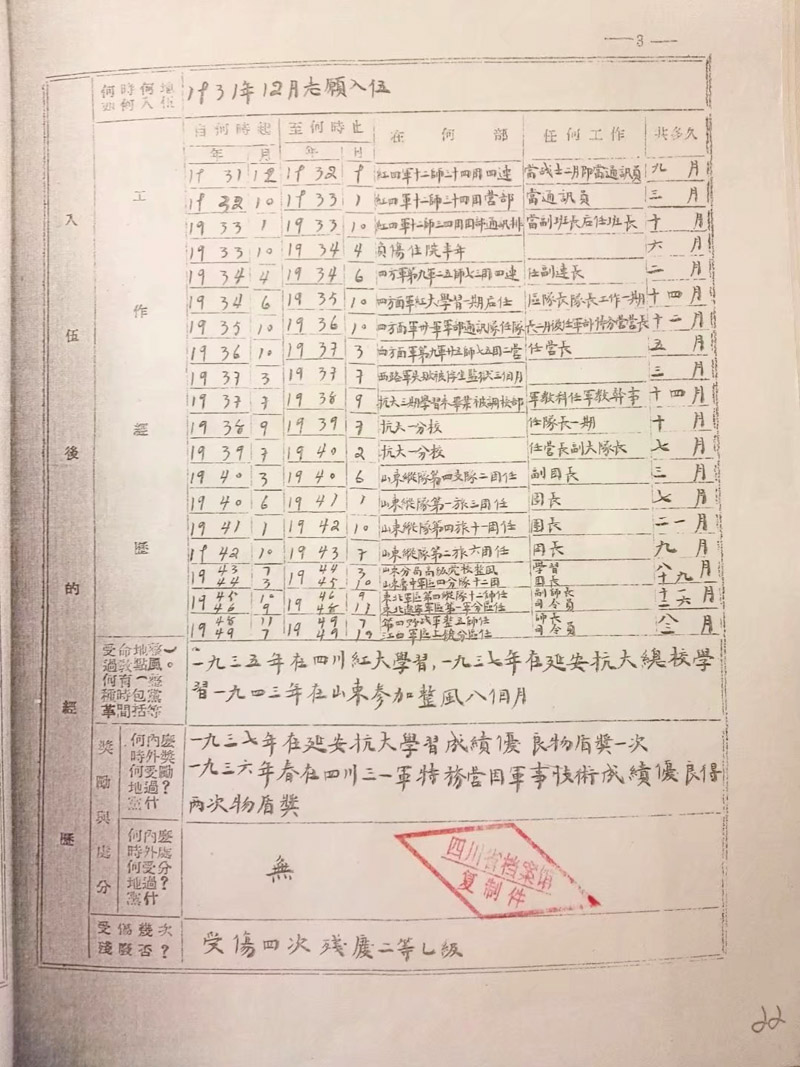 —3—
入伍後的經歷
何時何地如何入伍
1931年12月志願入伍
工作經歷
自何時起 至何時止 在何部 任何工作 共多久
年 月 年 月
1931 12 1932 9 紅四軍十二師三十四团四連 當战士二月即當通訊員 九月
1932 10 1933 1 紅四軍十二師三十四团营部 當通訊員 三月
1933 1 1933 10 紅四軍十二師三四团团部通訊排 當副班長后任班長 十月
1933 10 1934 4 負傷住院半年 六月
1934 4 1934 6 四方軍第九軍二五師七三团四連 任副連長 二月
1934 6 1935 10 四方面軍紅大學習一期后任 區隊長隊長工作一期 十四月
1935 10 1936 10 四方面軍卅一軍軍部通訊隊任隊長一月後任軍部特务营营長 十二月
1936 10 1937 3 四方面軍第九軍廿五師七五团二营 任营長 五月
1937 3 1937 7 西路軍失敗被俘生監獄三個月 三月
1937 7 1938 9 抗大三期學習未畢業被調校部 軍教科任軍教幹事 十四月
1938 9 1939 7 抗大一分校 任隊長一期 十月
1939 7 1940 2 抗大一分校 任营長副大隊長 七月
1940 3 1940 6 山東縱隊第四支隊二团任 副团長 三月
1940 6 1941 1 山東縱隊第一旅三团任 团長 七月
1941 1 1942 10 山東縱隊第四旅十一团任 团長 二一月
1942 10 1943 7 山東縱隊第二旅六团任 团長 九月
1943 7 1944 3 山東分局高級党校整風 學習 八月
1944 3 1945 10 山東魯中軍區四分隊十二团 团長 十九月
1945 10 1946 9 東北軍區第四縱隊十二師任 副師長 十一
1946 9 1948 11 東北遼寧軍區第一軍分區任 司令員 二六月
1948 11 1949 7 第四野战軍整五師任 師長 八
1949 7 1949 10 江西軍區上饒分區任 司令員 三月
受過何種革命教育時間地點（包括整風。黨等
一九三五年在四川紅大學習，一九三七年在延安抗大總校學
習一九四三年在山東参加整風八個月
獎勵與處分
何時何地黨內外受過什麼獎勵？
一九三七年在延安抗大學習成績優良物盾獎一次
一九三六年春在四川三一軍特務营因軍事技術成績優良得
兩次物盾獎
何時何地黨內外受過什麼處分？
無
四川省档案馆
复制件
受傷幾次殘廢否？
受傷四次 残廢二等乚級
22